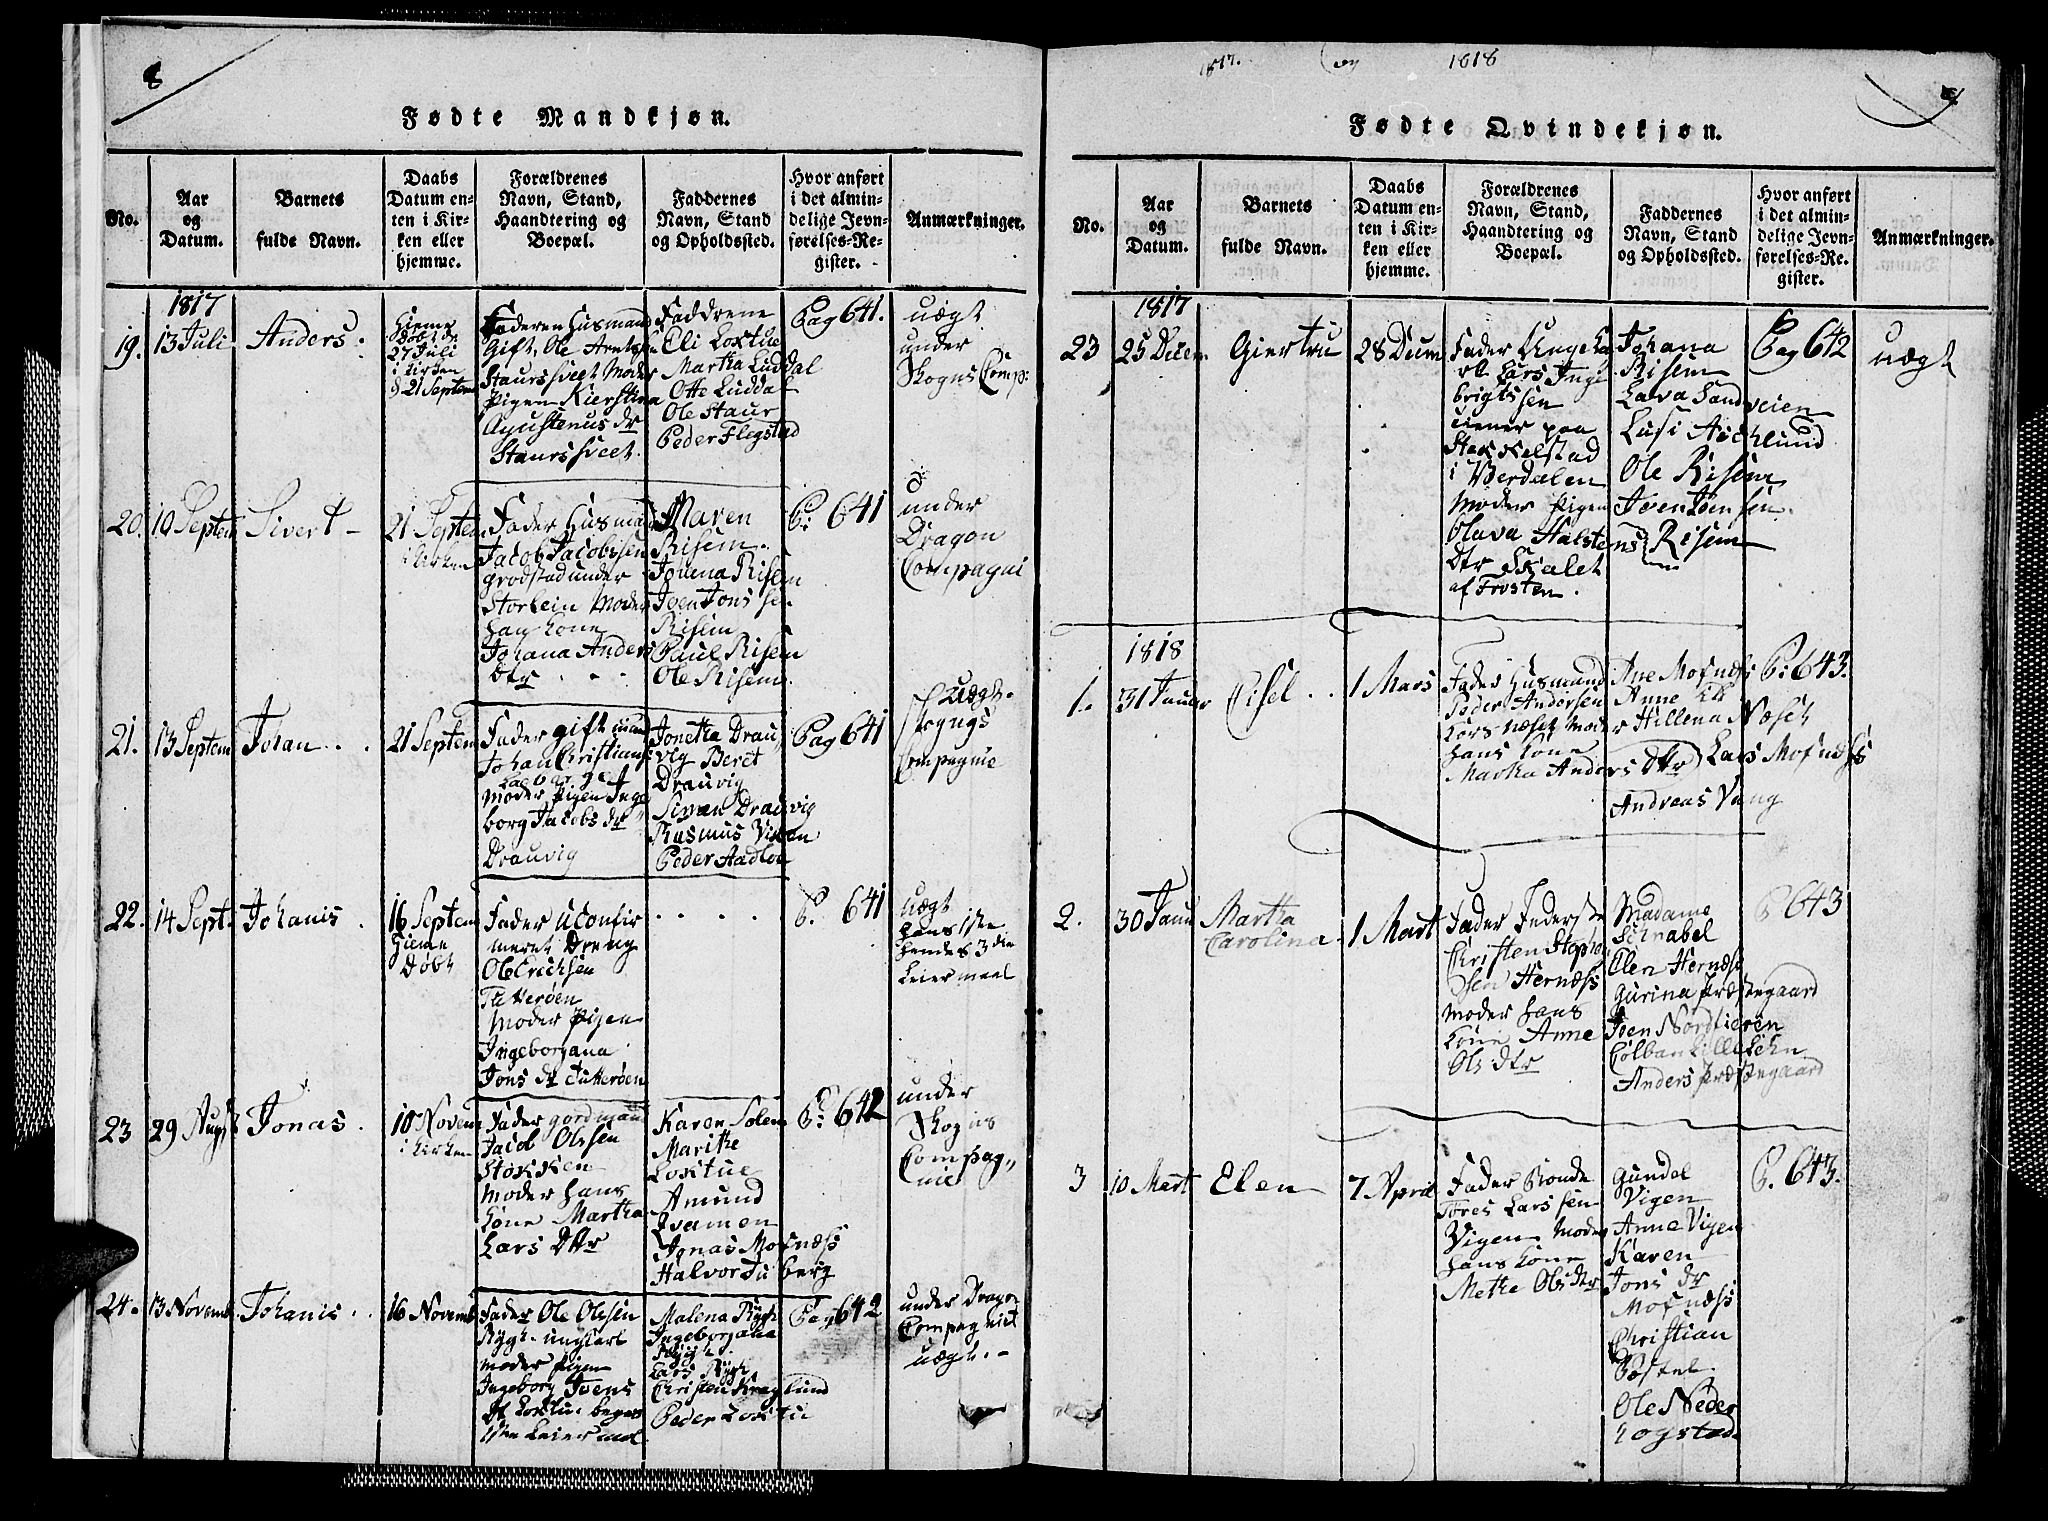 8
Fødte Mandkjøn.
No.
Aar
og
Datum.
Barnets
fulde Navn.
Daabs
Datum en-
ten i Kir-
ken eller
hjemme.
Forældrenes
Navn, Stand,
Haandtering og
Boepæl.
Faddernes
Navn, Stand
og Opholdssted.
Hvor anført
i det almin-
delige Jevn-
førelses-Re-
gister.
Anmærkninger.
1817
19.
13 Juli
Anders
Hieme
Døbt d
27 Juli
i Kirken
d 21 Septem
Faderen Husmand
Gift, Ole Arntsen
Staurssveet Moder
Pigen Kierstina
Agustenus dr
Staurssveet.
Faddrene
Eli Loktue
Martha Luddal
Otte Luddal
Ole Staur
Peder Flegstad
Pag 641.
uægt
under
Skogns Comp:
20.
10 Septem
Sivert
21 Septem
i Kirken
Fader Husmand
Jacob Jacobsen
grodstad under
Storlein Moder
Hans Kone
Johana Anders
Dtr
Maren
Risem
Johena Risem
Iven Jons sen
Risem
Paul Risem
Ole Risem
P: 641
under
Dragon
Compagni
21.
13 Septem
Johan
21 Septem
Fader gift mand
Johan Christians
Moder Pigen Inge
borg Jacobs dr
Drauvig
Jonetha Drau
vig Beret
Drauvig
Simen Drauvig
Rasmus
Peder
Pag 641
uægt
Skogngs
Compagnie
22.
14 Sept.
Johanis
16 Septem
Hieme
Døbt
Fader uconfir
meret Dreng
Ole Erichsen
Tutterøen
Moder Pigen
Ingeborjana
Jons dr Tutterøen
P. 641
uægt
Hans 1ste
Hendes 3 die
Leiermaal
23
29 Augst
Jonas
10 Novem
i Kirken
Fader gordman
Jacob Olssen
Støkken
Moder Hans
Kone Martha
Lars Dtr
Karen Solem
Marithe
Loktue
Amund
Ivamen
Jonas Mosnæss
Halvor Tuberg
P: 642
under
Skogns
Compag
nie
24.
13 Novemb
Johanis
16 Novemb
Fader Ole Olssen
Rygh ungkarl
Moder Pigen
Ingeborg Ivens
dr Loktu beges
1ste Leiermal
Malena Rygh
Ingeborjana
Rygh
Lars Rygh
Christen Kraglund
Peder Loktu
Pag 642
under Dragon
Compagniet
uægt.
1817.
og
1818
Fødte Qvindekjøn.
No.
Aar
og
Datum.
Barnets
fulde Navn.
Daabs
Datum en-
ten i Kir-
ken eller
hjemme.
Forældrenes
Navn, Stand,
Haandtering og
Boepæl.
Faddernes
Navn, Stand
og Opholdssted.
Hvor anført
i det almin-
delige Jevn-
førelses-Re-
gister.
Anmærkninger.
1817
23
25 Decem
Giertru
28 Decem
Fader Unge Ka
rl Lars Inge
brigtssen
tiener paa
Stekkelstad
i Værdalen
Moder Pigen
Olava Halstens
Dtr Skalet
af Frosten.
Johana
Risem
Lava Sandveien
Lusi Aschlund
Ole Risem
Iven Jonsen
Risem
Pag 642
uægt
1818
1.
31 Januar
Cisel
1 Mars
Fader Husmand
Peder Andersen
Korsnæset Moder
Hans Kone
Marka Anders Dtr
Ane Mosnæs
Anne
Hellena Næset
Lars Mosnæss
Andreas Vang
P: 643.
2.
30 Janu
Martha
Carolina
1 Mart
Fader
Christen Stephe
sen Hernæss
Moder Hans
Kone Anne
Ols dtr
Madame
Schnabel
Elen Hernæss
Gurina Præstegaard
Iven Nordtierøn
Colban
Anders Præstegaard
P 643
3
10 Mart
Elen
7 April
Fader Bonde
Tøres Larssen
Vigen Moder
Hans Kone
Methe Ols dtr
Gundel
Vigen
Anne Vigen
Karen
Jons dr
Mosnæss
Christian
Postel
Ole Neder
Hogstad
P. 643.